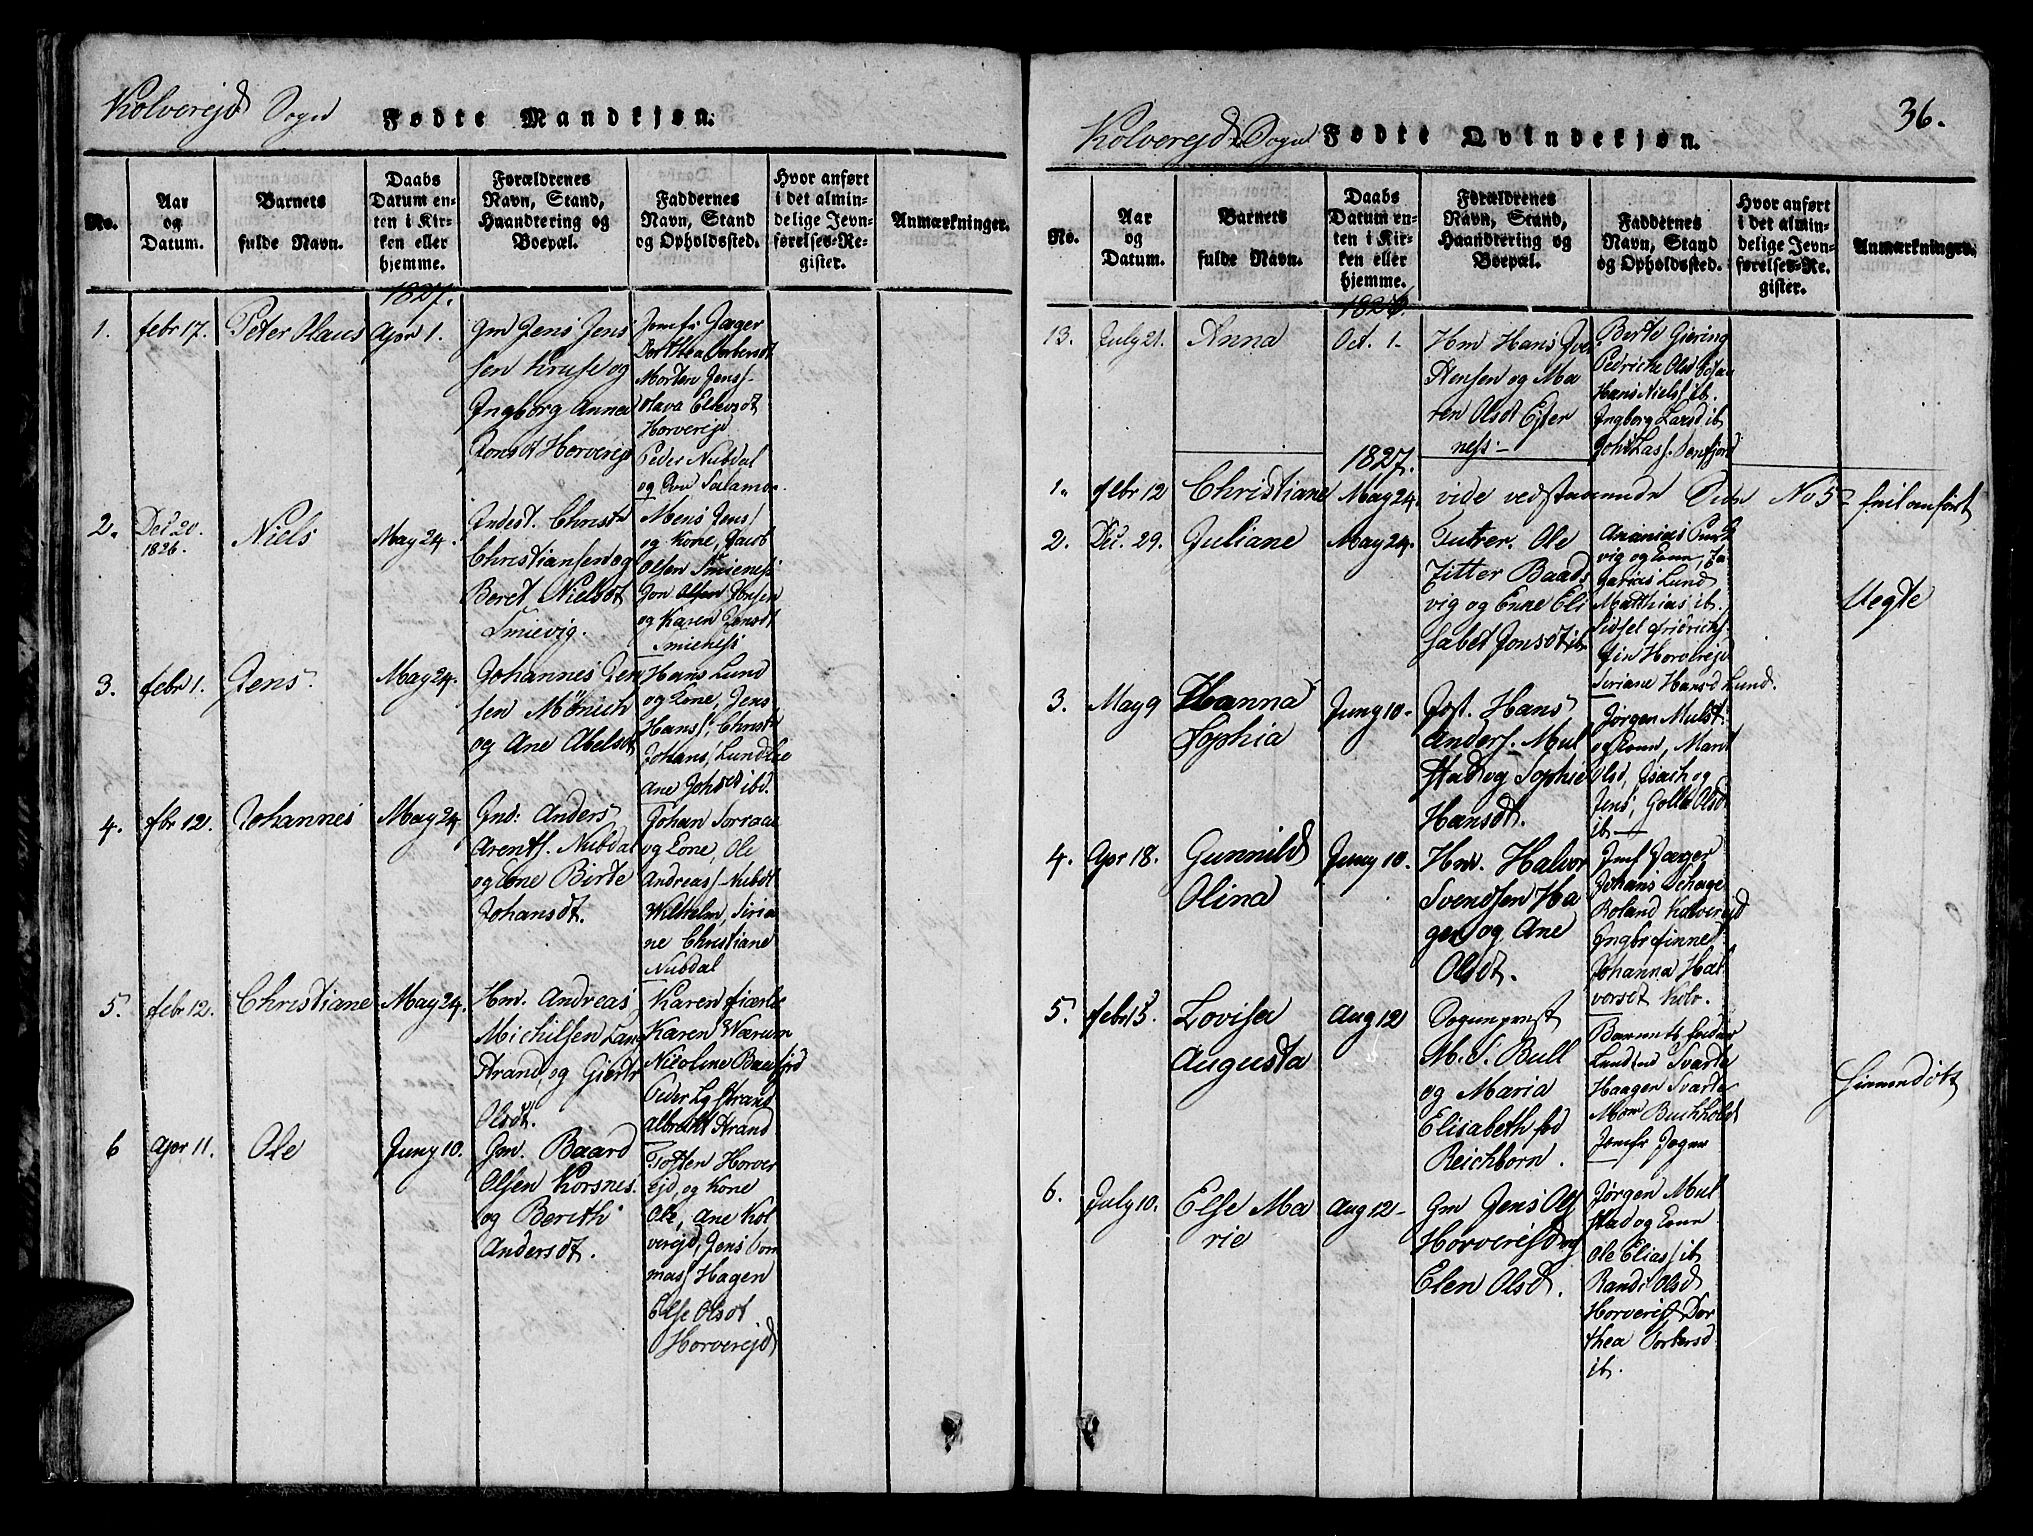 Kolverejd Sogn Fødte Mandkjøn.
No.
Aar
og
Datum.
Barnets
fulde Navn.
Daabs
Datum en-
ten i Kir-
ken eller
hjemme.
Forældrenes
Navn, Stand,
Haandtering og
Boepæl.
Faddernes
Navn, Stand
og Opholdssted.
Hvor anført
i det almin-
delige Jevn-
førelses-Re-
gister.
Anmærkninger.
1827.
1. febr 17. Peter Olaus Apr 1.
Gm Jens Jens
sen Kruse og
Ingborg Anna
Horverejd
Jomfr Jæger
Dorthea Torbersdt
Morten Jens/-
Olava Ellevsdt
Horverejd
Peder Nubdal
og
2. Dec 20.
1826.
Niels May 24.
Indest. Christn
Christiansen og
Beret Nielsdt
Smievig.
Mons Jens/
og Kone, Jacob
Olsen Smieness
Jon Olsen Jonsen
og Karen Jensdt
Smieness
3. febr 1. Jens. May 24.
Johannes Jen
sen Mönich
og Ane Abelsdt
Hans Lund
og Kone, Jens
Hans/, Christn
Johans, Lund
Ane Johsdt ibd.
4. fbr 12. Johannes May 24
Gmd: Anders
Arents. Nubdal
og Kone Birte
Johansdt.
Johan
og Kone, Ole
Andreas/ Nubdl
Wilhelm, Siria
ne Christiane
Nubdal
5. febr 12. Christiane May 24.
Hm. Andreas
Michilsen Lang
strand, og Giertr
Olsdt.
Karen
Karen Værum
Nicoline
Peder Lgstrand
Albrecht Strand
6 Apr 11. Ole Juny 10.
Gm. Baard
Olsen Korsnes.
og Berith
Andersdt.
Totten Horver
ejd, og Kone
Ole, Ane Kol
verejd, Jens Tom
mas/ Hagen
Else Olsdt
Horverejd
Kolverejds Sogn Fødte Qvindekjøn. 36.
No.
Aar
og
Datum.
Barnets
fulde Navn.
Daabs
Datum en-
ten i Kir-
ken eller
hjemme.
Forældrenes
Navn, Stand,
Haandtering og
Boepæl.
Faddernes
Navn, Stand
og Opholdssted.
Hvor anført
i det almin-
delige Jevn-
førelses-Re-
gister.
Anmærkninger.
1826.
13. July 21. Anna Oct. 1.
Hm Hans
og Ma
ren Olsdt
ness-
Berte Giering
Pedriche Olsd
Hans Niels/ ib.
Ingborg Larsd ib
1827.
1. febr 12 Christiane May 24. vide vedstaaende Side No 5 feil anført
2. Dec. 29. Juliane May 24.
Ole
Zitter Baads
vig og Enke Eli
sabet Jonsdt ib.
Ananias
vig og Kone, Za
carias Lund
Matthias ib.
Sidsel Friderich
Horverejd
Siriane Hansd Lund.
Uegte
3. May 9 Hanna
Sophia
Juny 10.
Hans
Anders. Mul
stad og Sophie
Hansdt.
Jørgen Mulst
og Kone, Marit
Olsd, Isach og
Jens, Golla Olsdt
ib
4. Apr 18. Gunnild
Olina
Juny 10.
Hm. Halvor
Svendsen Ha
gen og Ane
Olsdt.
Jmf Jæger
Johans Schage
Roland Kolverejd
Ingbr finne
Johanna Hal
vorsdt Kolv.
5. febr 15. Lovisa
Augusta
Aug 12
Sogneprest
M. S. Bull
og Maria
Elisabeth fød
Reichborn.
Barnets Fader
Svarte
Haagen Svarte
Mdm Buchholdt
Jomfr Jæger
hiemmedøbt
6. July 10. Else Ma
rie
Aug 12-
Gm Jens Ols
Horverejd og
Elen Olsd.
Jørgen Mul
stad og Kone
Ole Elias/ ib
Randi Olsd
Horverejd Dor
thea Torbersd
ib.